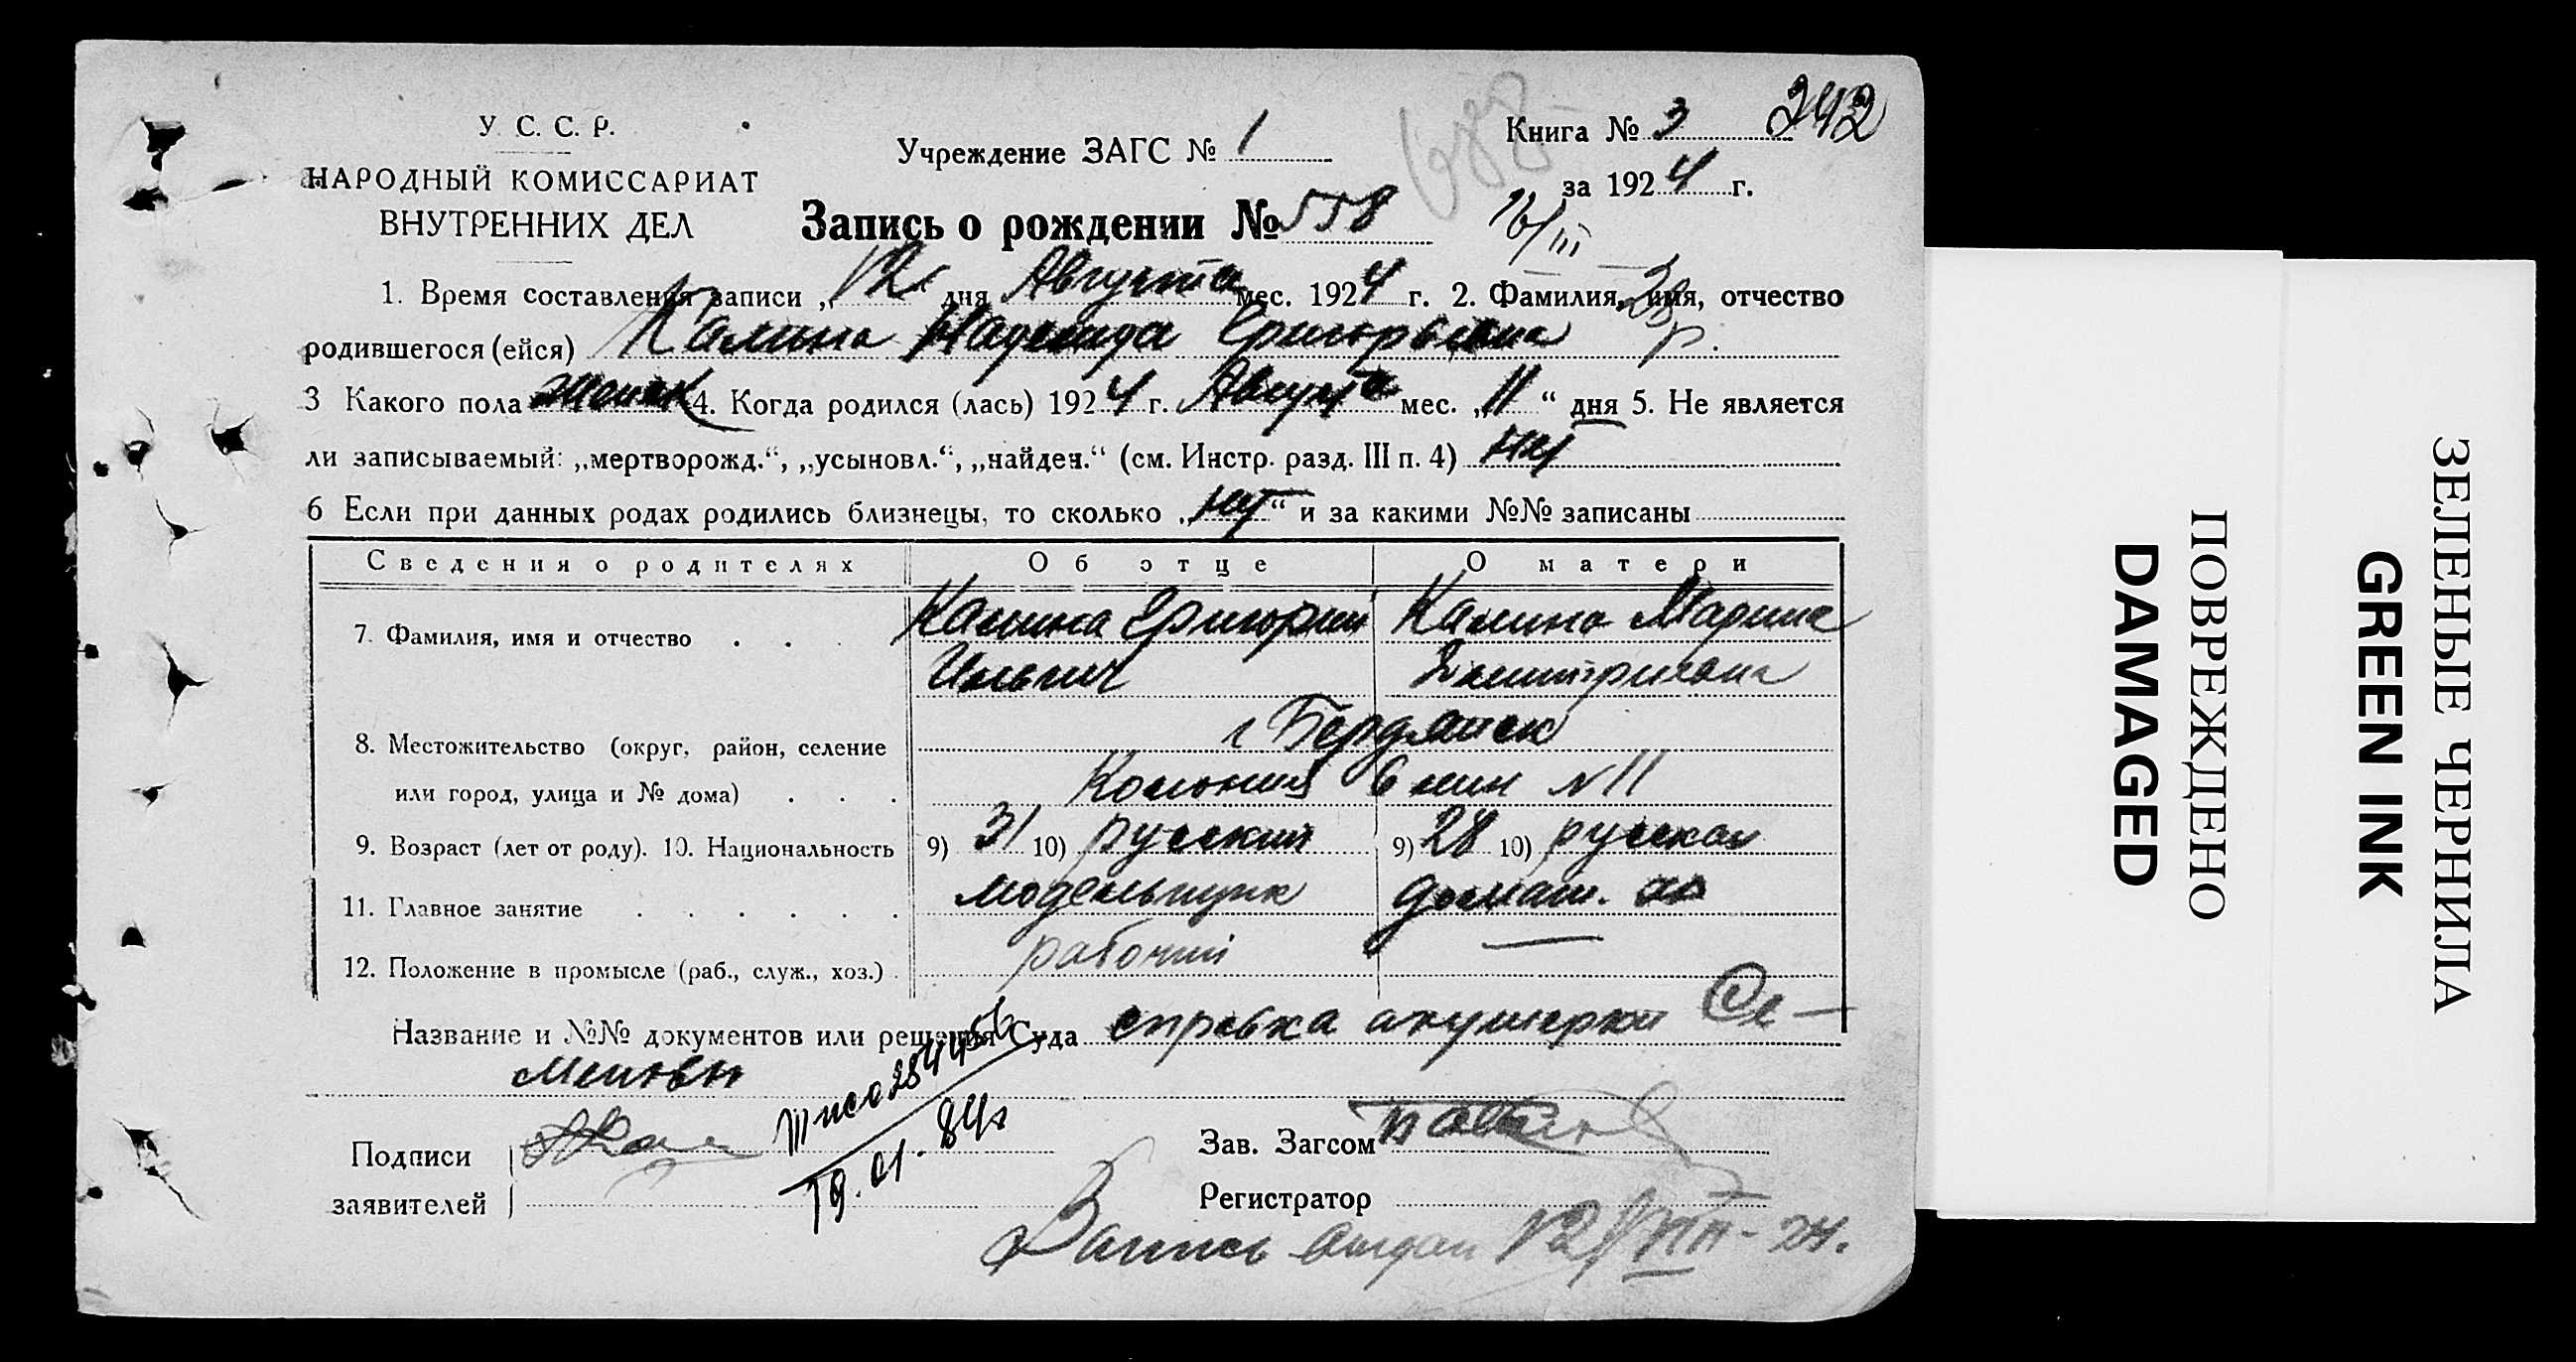 У. С. С. Р.
НАРОДНЫЙ КОМИССАРИАТ
ВНУТРЕННИХ ДЕЛ
Учреждение ЗАГС № 1
Книга № 3 242
за 1924 г.
Запись о рождении № 558
688
16/III
28
р.
1. Время составления записи „12“ дня Августа мес. 1924 г. 2. Фамилия, имя, отчество
родившегося (ейся) Калина Надежда Григорьевна
3 Какого пола женск 4. Когда родился (лась) 1924 г. Августа мес. „11“ дня 5. Не является
ли записываемый: „мертворожд.“, „усыновл.“, „найден.“ (см. Инстр. разд. III п. 4) нет
6 Если при данных родах родились близнецы, то сколько „нет“ и за какими №№ записаны
Сведения о родителях Об отце О матери
7. Фамилия, имя и отчество . . . Калина Григорий Калина Мария
Ильич Дмитриевна
г Бердянск
8. Местожительство (округ, район, селение
или город, улица и № дома) . . . Колония 6 лин N 11
9. Возраст (лет от роду). 10. Национальность 9) 31 10) русский 9) 28 10) русская
11. Главное занятие . . . . . . модельщик домаш. хоз
12. Положение в промысле (раб., служ., хоз.) . рабочий —
Название и №№ документов или решения Суда справка акушерки
284456
19.01.84г
Подписи
заявителей
Зав. Загсом
Регистратор
Запись выдан 12/VIII-24.
ПОВРЕЖДЕНО
DAMAGED
ЗЕЛЕНЫЕ ЧЕРНИЛА
GREEN INK